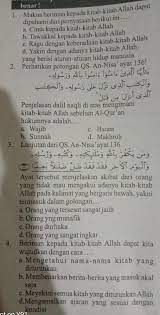 benar !
1. Makna beriman kepada kitab-kitab Allah dapat
dipahami dari pernyataan berikut ini ....
a. Cinta kepada kitab-kitab Allah
b. Tawakkal kepada kitab-kitab Allah
c. Ragu dengan keberadaan kitab-kitab Allah
d. Yakin dengan adanya kitab-kitab Allah
yang berisi aturan-aturan hidup manusia
2. Perhatikan potongan QS. An-Nisa' ayat 136!
يَا أَيُّهَا الَّذِينَ آمَنُوا آمِنُوا بِاللَّهِ وَرَسُولِهِ
وَالْكِتَابِ الَّذِي نَزَّلَ عَلَى رَسُولِهِ وَالْكِتَابِ
الَّذِي أَنْزَلَ مِنْ قَبْلُ
Penjelasan dalil naqli di atas mengimani
kitab-kitab Allah sebelum Al-Qur'an
hukumnya adalah....
a. Wajib c. Haram
b. Sunnah d. Makruh
3. Lanjutan dari QS. An-Nisa' ayat 136
وَمَنْ يَكْفُرْ بِاللَّهِ وَمَلَائِكَتِهِ وَكُتُبِهِ وَرُسُلِهِ
وَالْيَوْمِ الْآخِرِ فَقَدْ ضَلَّ ضَلَالًا بَعِيدًا
Ayat tersebut menjelaskan akibat dari orang
yang tidak mau mengakui adanya kitab-kitab
Allah pada kalamat yang bergaris bawah, yakni
termasuk dalam golongan....
a. Orang yang tersesat sangat jauh
b. Orang yang munafik
c. Orang durhaka
d. Orang yang sangat ingkar
4. Beriman kepada kitab-kitab Allah dapat kita
wujudkan dengan cara ....
a. Mengetahui nama-nama kitab yang
diturunkan
b. Membenarkan berita-berita yang masuk akal
saja
c. Meyakini semua kitab yang diturunkan Allah
d. Mengamalkan ajaran yang sesuai dengan